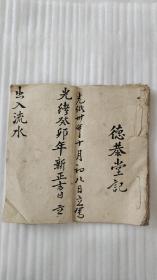 德恭堂記
光緒廿九年十月初八日立寫
光緒癸卯年新正吉日立
出入流水